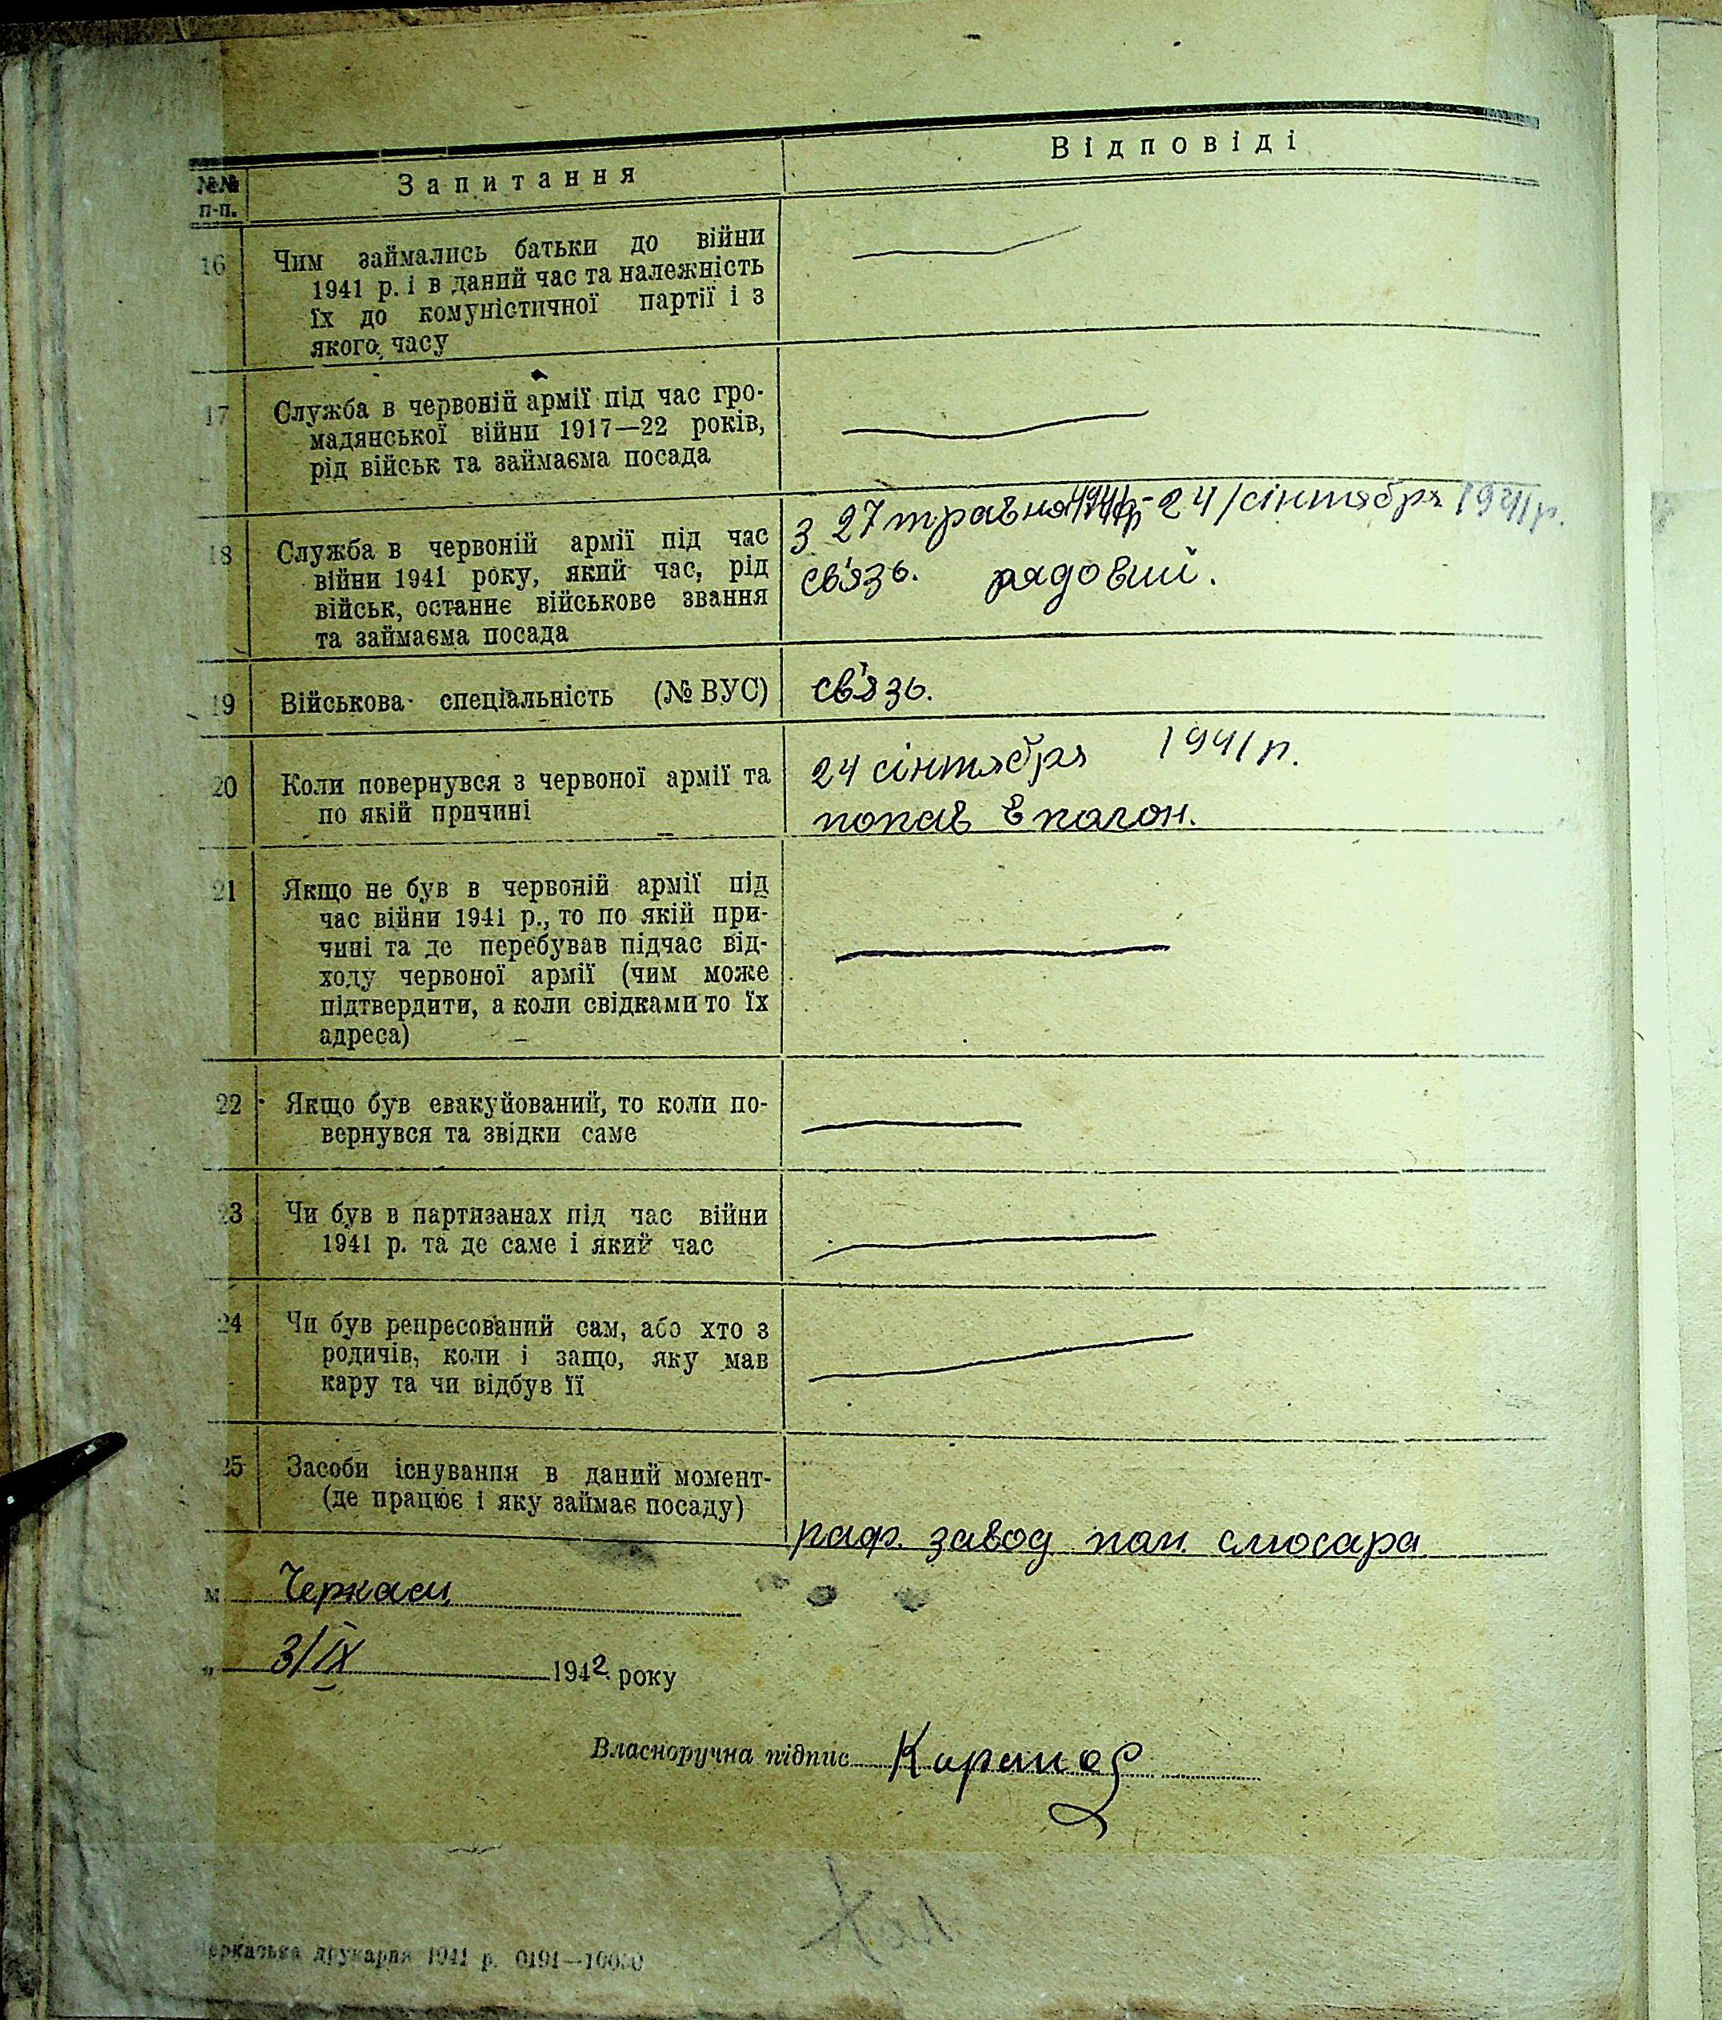 №№ Запитання Відповіді
п-п.
16 Чим займались батьки до війни
1941 р. і в даний час та належність
їх до комуністичної партії і з
якого часу
17 Служба в червоній армії під час гро-
мадянської війни 1917—22 років,
рід військ та займаєма посада
18 Служба в червоній армії під час
війни 1941 року, який час, рід
військ, останнє військове звання
та займаєма посада
З 27 травня 1941р - 24/сінтября 1941р.
св'язь. рядовий.
19 Військова спеціальність (№ ВУС) св'язь.
20 Коли повернувся з червоної армії та
по якій причині
24 сінтября 1941 р.
попав в полон.
21 Якщо не був в червоній армії під
час війни 1941 р., то по якій при-
чині та де перебував підчас від-
ходу червоної армії (чим може
підтвердити, а коли свідками то їх
адреса)
22 Якщо був евакуйований, то коли по-
вернувся та звідки саме
23 Чи був в партизанах під час війни
1941 р. та де саме і який час
24 Чи був репресований сам, або хто з
родичів, коли і защо, яку мав
кару та чи відбув її
25 Засоби існування в даний момент-
(де працює і яку займає посаду)
раф. завод пом. слюсара
м. Черкаси
„ 3/IX 1942 року
Власноручна підпис
друкарня 1941 р. 0191—10000